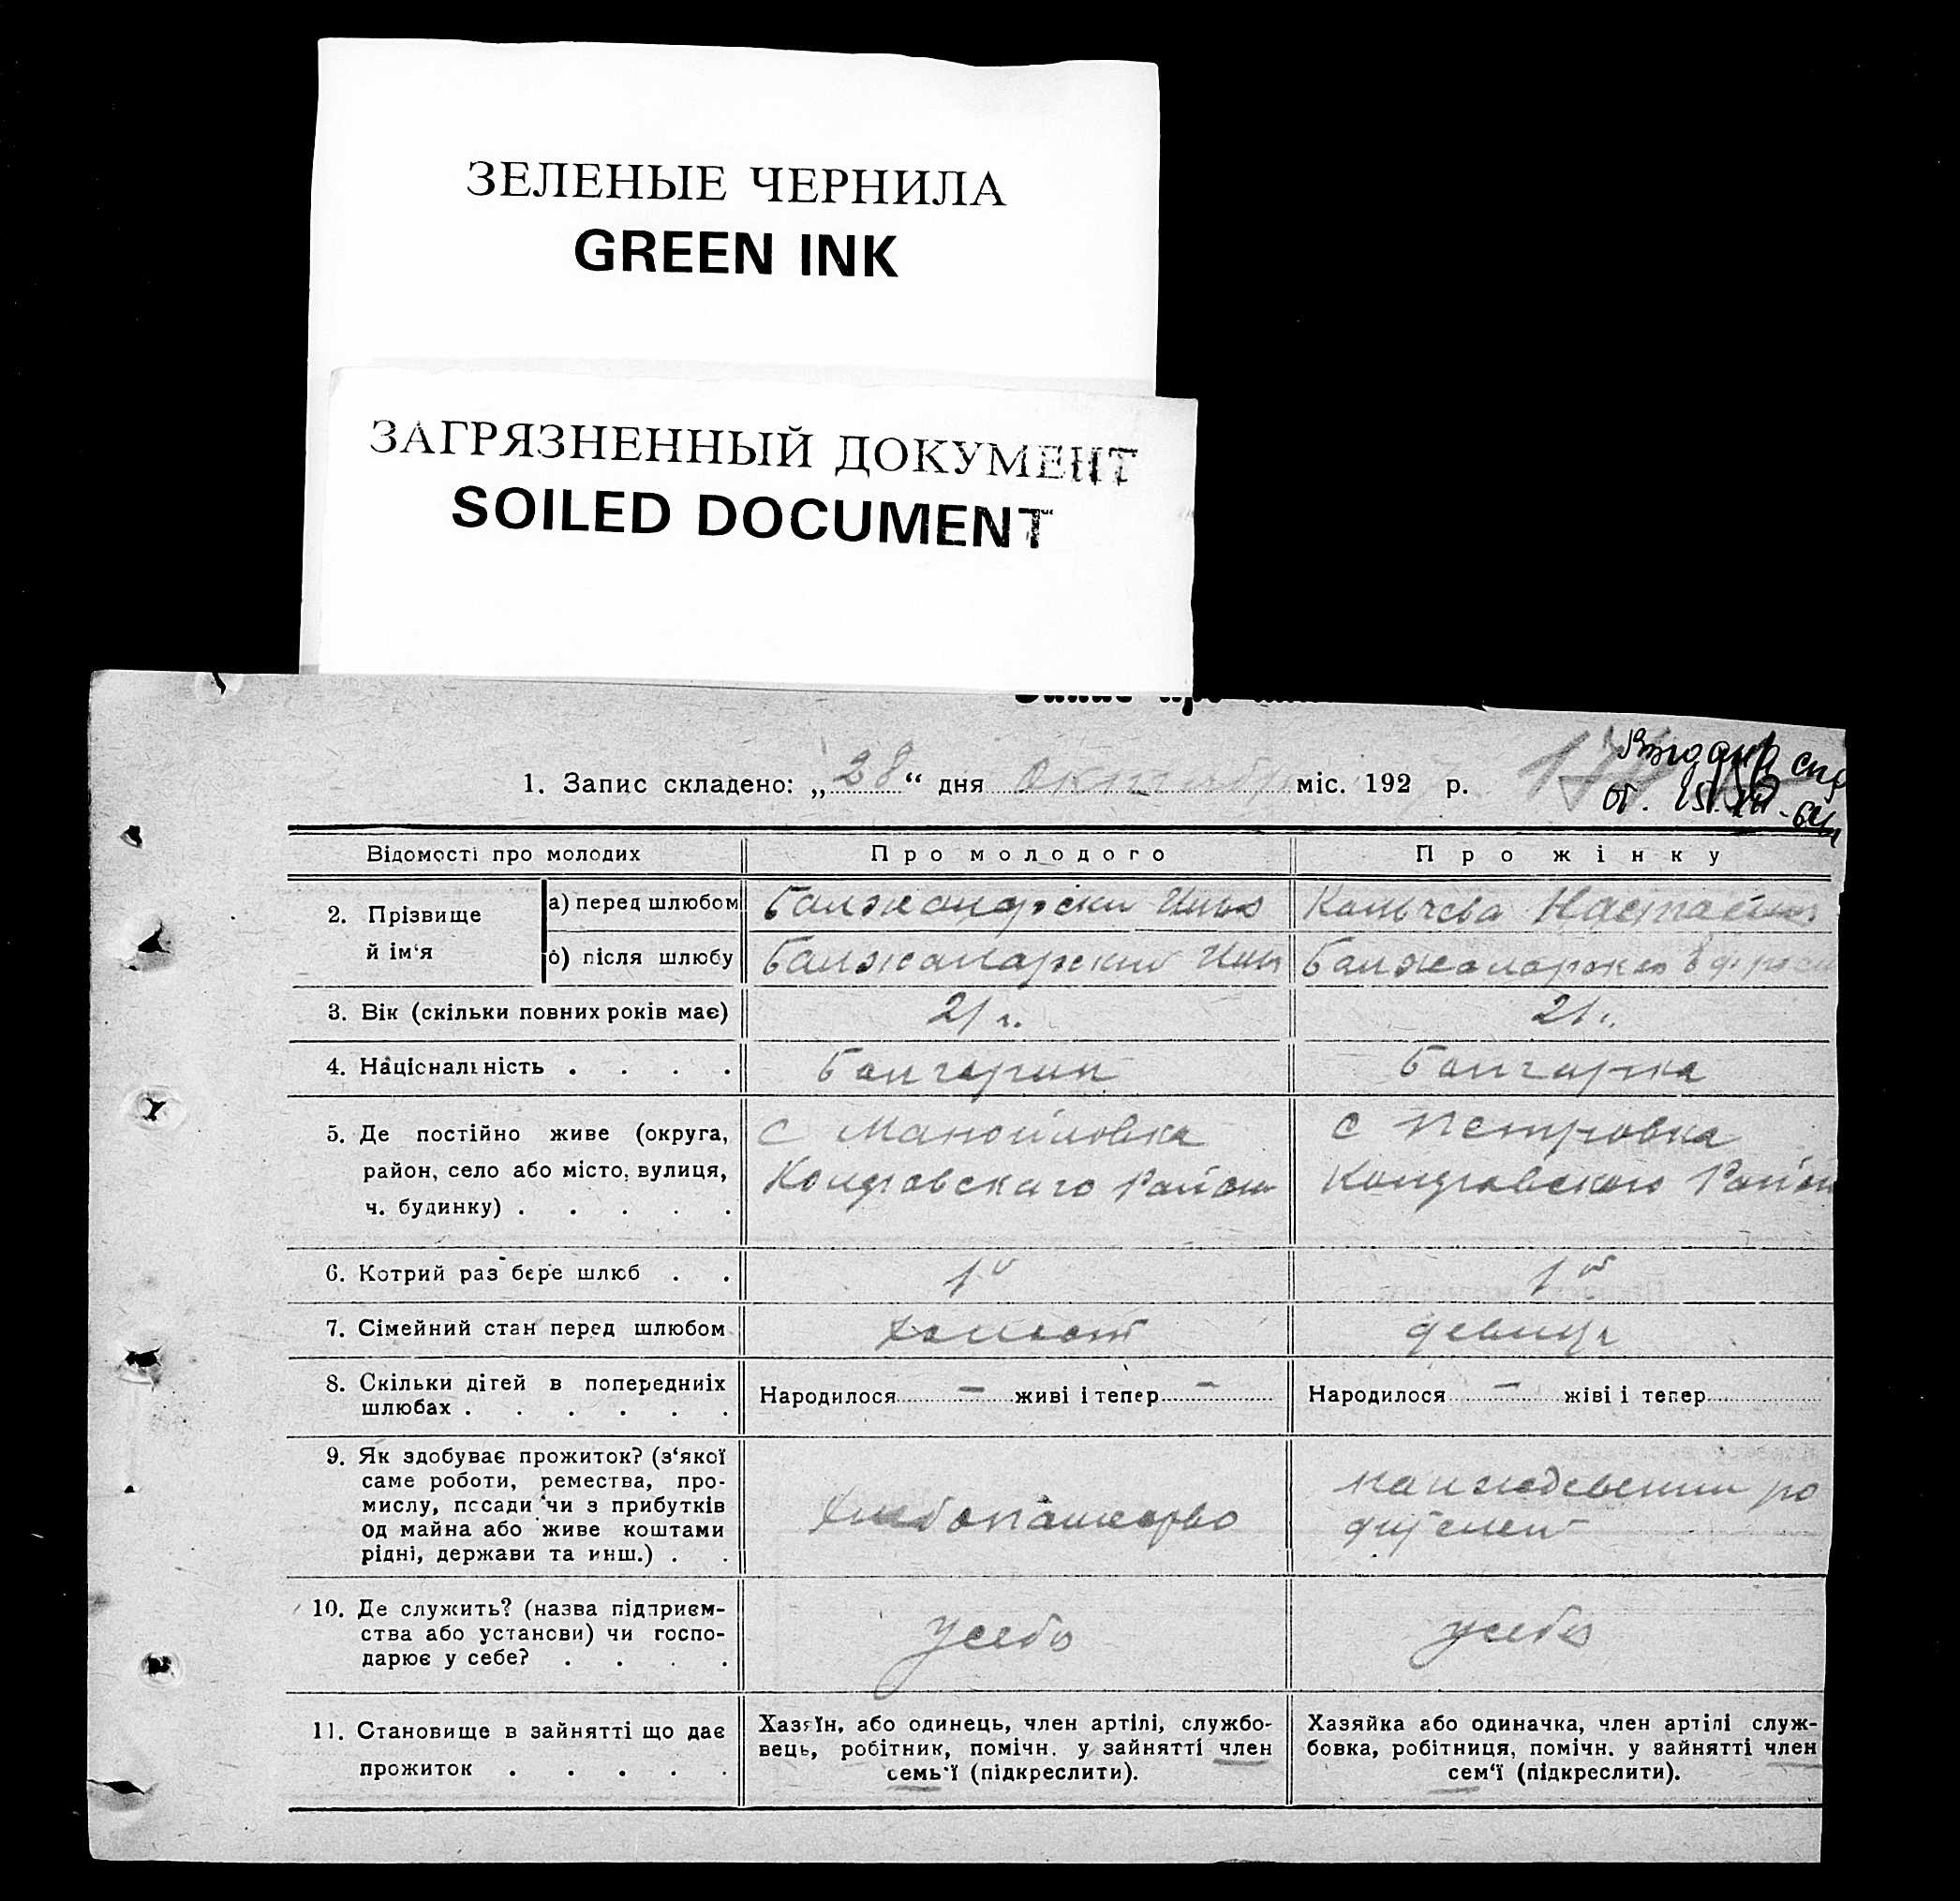 ЗЕЛЕНЫЕ ЧЕРНИЛА
GREEN INK
ЗАГРЯЗНЕННЫЙ ДОКУМЕНТ
SOILED DOCUMENT
1. Запис складено: „28“ дня октября міс. 192 р.
Відомості про молодих
Про молодого
Про жінку
2. Прізвище й ім‘я
а) перед шлюбом
Настасия
б) після шлюбу
3. Вік (скільки повних років має)
21 г.
21 г.
4. Національність . . . .
Болгарин
Болгарка
5. Де постійно живе (округа,
район, село або місто, вулиця,
ч. будинку) . . . . .
с Манойловка
Района
с Петровка
Район
6. Котрий раз бере шлюб . .
1й
1й
7. Сімейний стан перед шлюбом
холост
девица
8. Скільки дітей в попередниіх
шлюбах . . . . . .
Народилося – живі і тепер –
Народилося – жіві і тепер
9. Як здобуває прожиток? (з‘якої
саме роботи, ремества, про-
мислу, посади чи з прибутків
од майна або живе коштами
рідні, держави та инш.) . .
Хлебопашество
на иждевении ро
дителей
10. Де служить? (назва підприєм-
ства або установи) чи госпо-
дарює у себе? . . . .
у себя
у себя
11. Становище в зайнятті що дає
прожиток . . . . .
Хазяїн, або одинець, член артілі, службо-
вець, робітник, помічн. у зайнятті член
семь‘ї (підкреслити).
Хазяйка або одиначка, член артілі служ-
бовка, робітниця, помічн. у зайнятті член
сем‘ї (підкреслити).